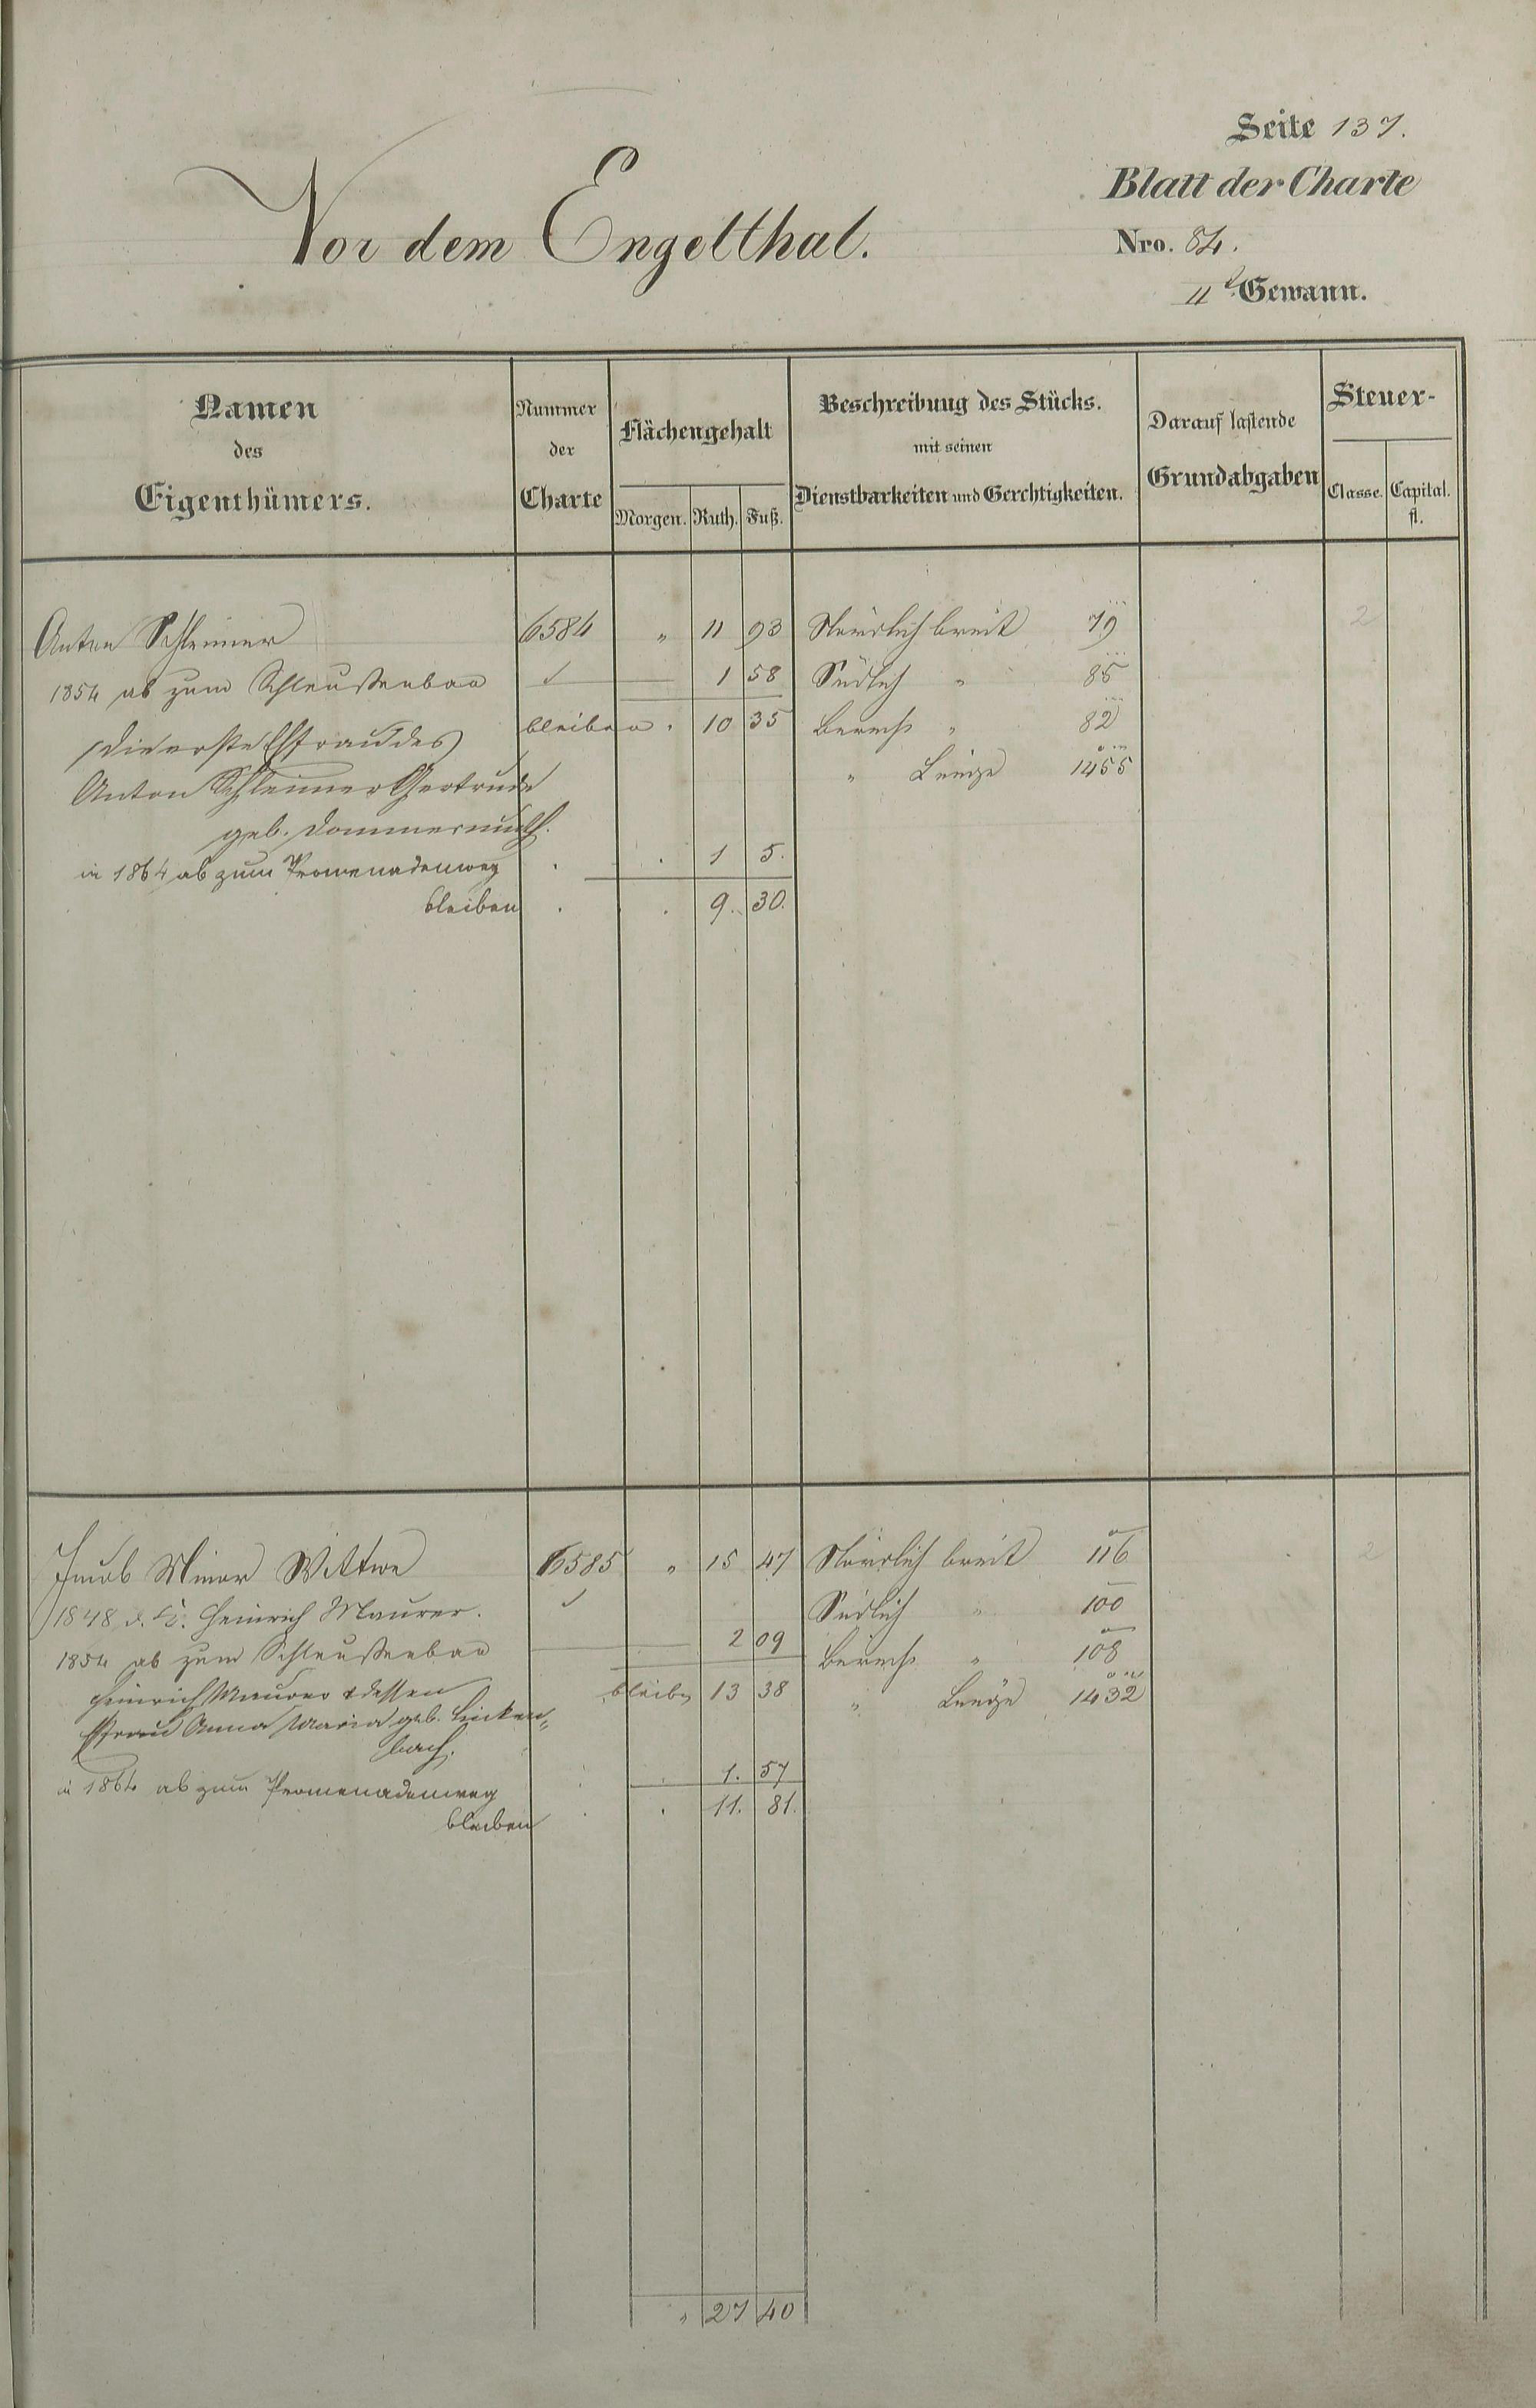 Seite 137.
Blatt der Charte
Vor dem Engelthal.
Nro. 84.
11 Gewann.
Namen des Eigenthümers.
Nummer der Charte
Flächengehalt
Morgen. Ruth. Fuß.
Beschreibung des Stücks. mit seinen Dienstbarkeiten und Gerchtigkeiten.
Darauf lastende Grundabgaben
Steuer-
Classe. Capital. fl.
Anton Schleimer 6584 " 11 93 Nördlich breit 79 2
1854 ab zum Schleußenbau 1 58 Südlich " 85
die erste Ehfrau des bleiben . 10 35 Berech " 82
Anton Schleimer Gertrude " Länge 1455
geb. Dommermuth.
in 1864 ab zum Promenadenweg . . 1 5.
bleiben . . 9. 30.
Jacob Minor Wittwe 6585 " 15 47 Nördlich breit 116 2
1848 d. Heinrich Maurer. Südlich " 100
1854 ab zum Schleußenbau 2 09 Berech " 108
Heinrich Maurer & dessen bleibn 13 38 " Länge 1432
Ehfrau Anna Maria geb. Linken„
bach.
in 1864 ab zum Promenadenweg . 1. 57
bleiben . . 11. 81.
" 27 40